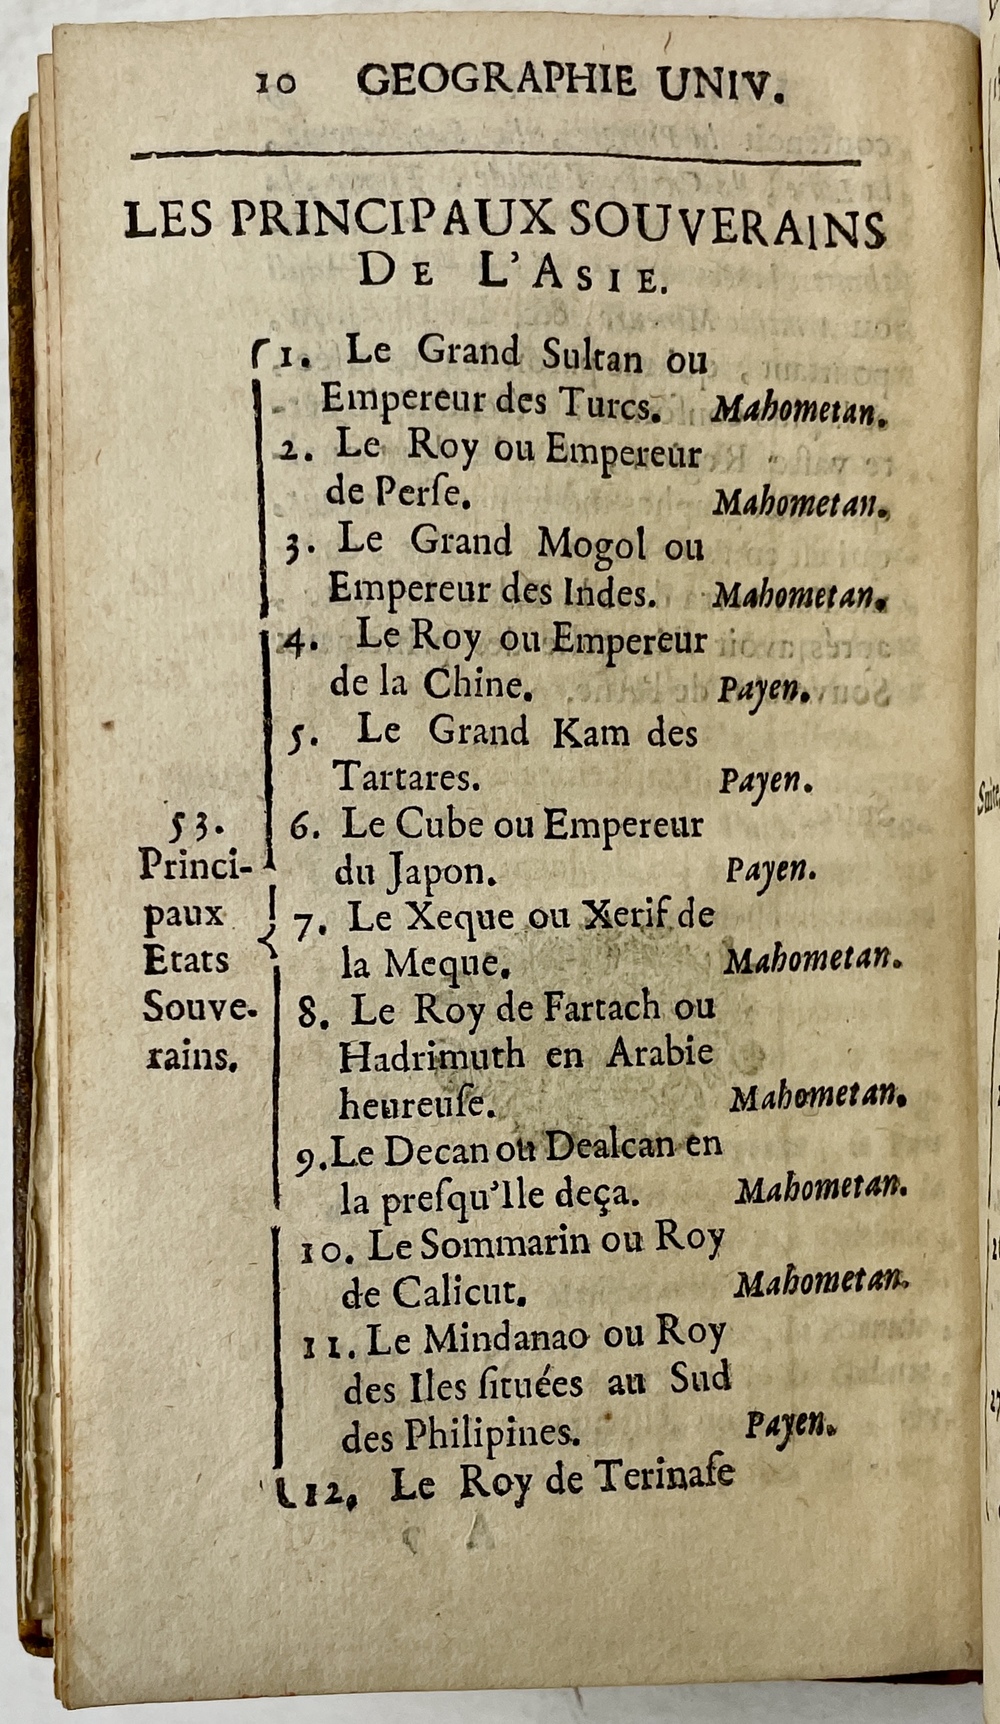 10 GEOGRAPHIE UNIV.
LES PRINCIPAUX SOUVERAINS
DE L'ASIE.
53.
Princi-
paux
Etats
Souve-
rains.
1. Le Grand Sultan ou
Empereur des Turcs. Mahometan.
2. Le Roy ou Empereur
de Perſe. Mahometan.
3. Le Grand Mogol ou
Empereur des Indes. Mahometan.
4. Le Roy ou Empereur
de la Chine. Payen.
5. Le Grand Kam des
Tartares. Payen.
6. Le Cube ou Empereur
du Japon. Payen.
7. Le Xeque ou Xerif de
la Meque. Mahometan.
8. Le Roy de Fartach ou
Hadrimuth en Arabie
heureuſe. Mahometan.
9. Le Decan ou Dealcan en
la preſqu'Ile deça. Mahometan.
10. Le Sommarin ou Roy
de Calicut. Mahometan.
11. Le Mindanao ou Roy
des Iles ſituées au Sud
des Philipines. Payen.
12. Le Roy de Terinaſe